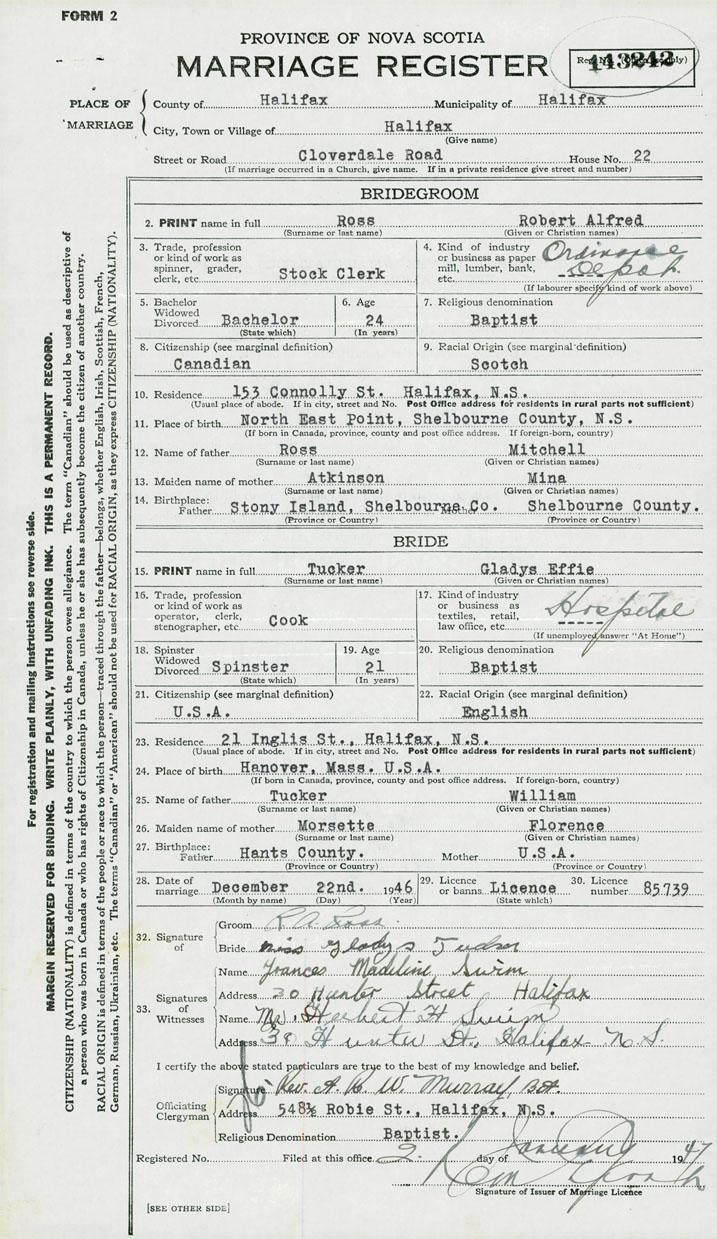 FORM 2
PROVINCE OF NOVA SCOTIA
MARRIAGE REGISTER
PLACE OF MARRIAGE
County of Halifax Municipality of Halifax
City, Town or Village of Halifax
(Give name)
Street or Road Cloverdale Road House No. 22
(If marriage occurred in a Church, give name. If in a private residence give street and number)
BRIDEGROOM
2. PRINT name in full Ross Robert Alfred
(Surname or last name) (Given or Christian names)
3. Trade, profession or kind of work as spinner, grader, clerk, etc. Stock Clerk
4. Kind of industry or business as paper mill, lumber, bank, etc. Ordinance Depot.
(If labourer specify kind of work above)
5. Bachelor Widowed Divorced Bachelor
(State which)
6. Age 24
(In years)
7. Religious denomination
Baptist
8. Citizenship (see marginal definition)
Canadian
9. Racial Origin (see marginal definition)
Scotch
10. Residence 153 Connolly St. Halifax, N.S.
(Usual place of abode. If in city, street and No. Post Office address for residents in rural parts not sufficient)
11. Place of birth North East Point, Shelbourne County, N.S.
(If born in Canada, province, county and post office address. If foreign-born, country)
12. Name of father Ross Mitchell
(Surname or last name) (Given or Christian names)
13. Maiden name of mother Atkinson Mina
(Surname or last name) (Given or Christian names)
14. Birthplace: Father Stony Island, Shelbourne Co. Shelbourne County.
(Province or Country) (Province or Country)
BRIDE
15. PRINT name in full Tucker Gladys Effie
(Surname or last name) (Given or Christian names)
16. Trade, profession or kind of work as operator, clerk, stenographer, etc Cook
17. Kind of industry or business as textiles, retail, law office, etc. Hospital
(If unemployed answer "At Home")
18. Spinster Widowed Divorced Spinster
(State which)
19. Age 21
(In years)
20. Religious denomination
Baptist
21. Citizenship (see marginal definition)
U.S.A.
22. Racial Origin (see marginal definition)
English
23. Residence 21 Inglis St., Halifax, N.S.
(Usual place of abode. If in city, street and No. Post Office address for residents in rural parts not sufficient)
24. Place of birth Hanover, Mass. U.S.A.
(If born in Canada, province, county and post office address. If foreign-born, country)
25. Name of father Tucker William
(Surname or last name) (Given or Christian names)
26. Maiden name of mother Morsette Florence
(Surname or last name) (Given or Christian names)
27. Birthplace: Father Hants County. Mother U.S.A.
(Province or Country) (Province or Country)
28. Date of marriage December 22nd. 1946
(Month by name) (Day) (Year)
29. Licence or banns Licence
(State which)
30. Licence number 85739
32. Signature of
Groom R. A. Ross.
Bride Miss Gladys
33. Signatures of Witnesses
Name Frances Madeline Swim
Address 30 Hunter Street Halifax
Name Mr. Herbert H Swim
Address 30 Hunter St. Halifax N.S.
I certify the above stated particulars are true to the best of my knowledge and belief.
Officiating Clergyman
Signature Rev. A. K. W. Murray,
Address 548½ Robie St., Halifax, N.S.
Religious Denomination Baptist.
Registered No. Filed at this office 2 day of January 1947
Signature of Issuer of Marriage Licence
[SEE OTHER SIDE]
For registration and mailing instructions see reverse side.
MARGIN RESERVED FOR BINDING. WRITE PLAINLY, WITH UNFADING INK. THIS IS A PERMANENT RECORD.
CITIZENSHIP (NATIONALITY) is defined in terms of the country to which the person owes allegiance. The term "Canadian" should be used as descriptive of
a person who was born in Canada or who has rights of Citizenship in Canada, unless he or she has subsequently become the citizen of another country.
RACIAL ORIGIN is defined in terms of the people or race to which the person—traced through the father—belongs, whether English, Irish, Scottish, French,
German, Russian, Ukrainian, etc. The terms "Canadian" or "American" should not be used for RACIAL ORIGIN, as they express CITIZENSHIP (NATIONALITY).